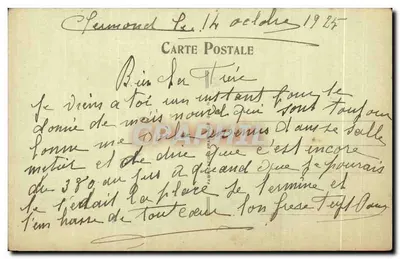 Clermond le 14 octobre 1925
CARTE POSTALE
Bien cher Frère
Je viens a toi un instant pour te
donné de mais nouvel qui sont toujour
bonne me dans se salle
métier et de dire que c'est encore
du 380 au jus a quand que je pourais
la place Je termine et
t'em brasse de tout cœur Ton frère